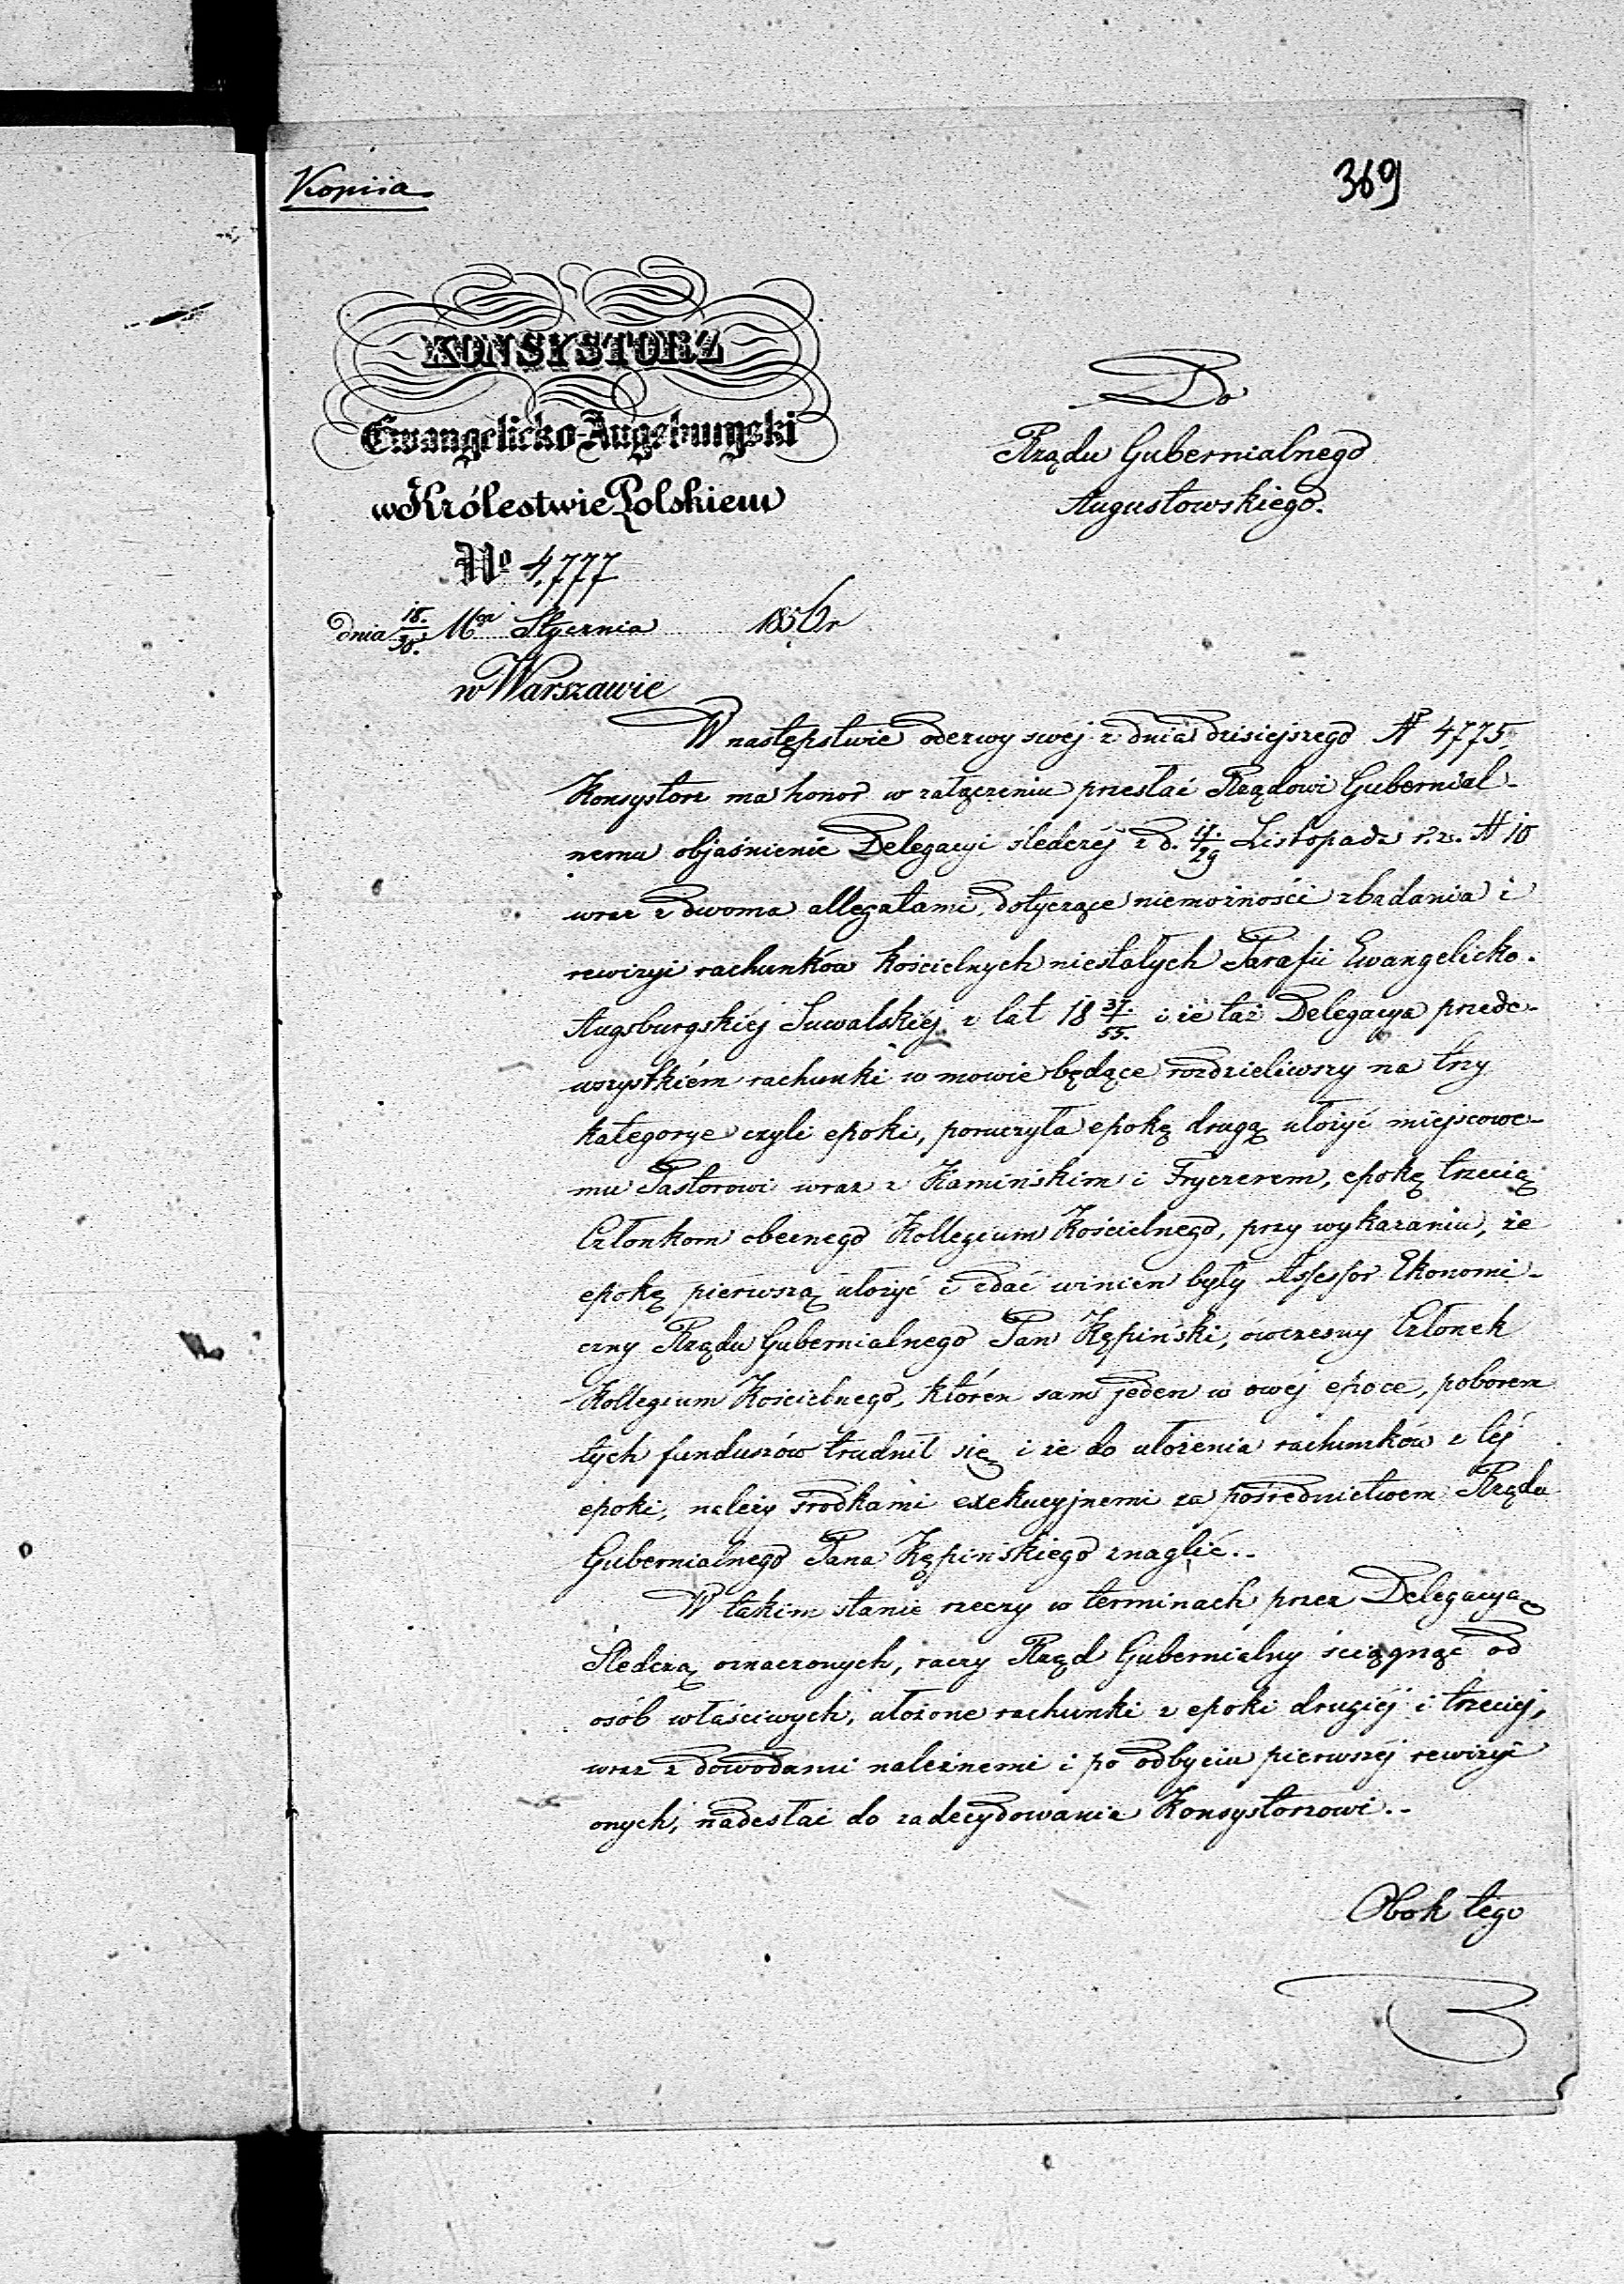 Kopiia
369
KONSYSTORZ
Ewangelicko-Augsburgski
w Królestwie Polskiem
No 4,777
dnia 18./30. Mca Stycznia 1856 r
w Warszawie
Do
Rządu Gubernialnego
Augustowskiego.
W następstwie odezwy swej z dnia dzisiejszego N 4775,
Konsystorz ma honor w załączeniu przesłać Rządowi Gubernial-
nemu objaśnienie Delegacyi śledczéj z d. 17./29 Listopada r. z. N 10
wraz z dwoma allegatami, dotyczące niemożności zbadania i
rewizyi rachunków kościelnych niestałych Parafii Ewangelicko-
Augsburgskiéj Suwalskiéj z lat 18 37./55. i że taż Delegacya przede-
wszystkiém rachunki w mowie będące rozdzieliwszy na trzy
kategorye czyli epoki, poruczyła epokę drugą ułożyć miejscowe-
mu Pastorowi wraz z Kamińskim i Fryczerem, epokę trzecią
Członkom obecnego Kollegium Kościelnego, przy wykazaniu, że
epokę pierwszą ułożyć i zdać winien były Assessor Ekonomi-
czny Rządu Gubernialnego Pan Kępiński, ówczesny Członek
Kollegium Kościelnego, któren sam jeden w owej epoce, poborem
tych funduszów trudnił się i że do ułożenia rachunków z téj
epoki, należy środkami exekucyjnemi za pośrednictwem Rządu
Gubernialnego Pana Kępińskiego znaglić.-
W takim stanie rzeczy w terminach przez Delegacyą
Śledczą oznaczonych, raczy Rząd Gubernialny ściągnąć od
osób właściwych, ułożone rachunki z epoki drugiéj i trzeciej,
wraz z dowodami należnemi i po odbyciu pierwszéj rewizyi
onych, nadesłać do zadecydowania Konsystorzowi.-
Obok tego